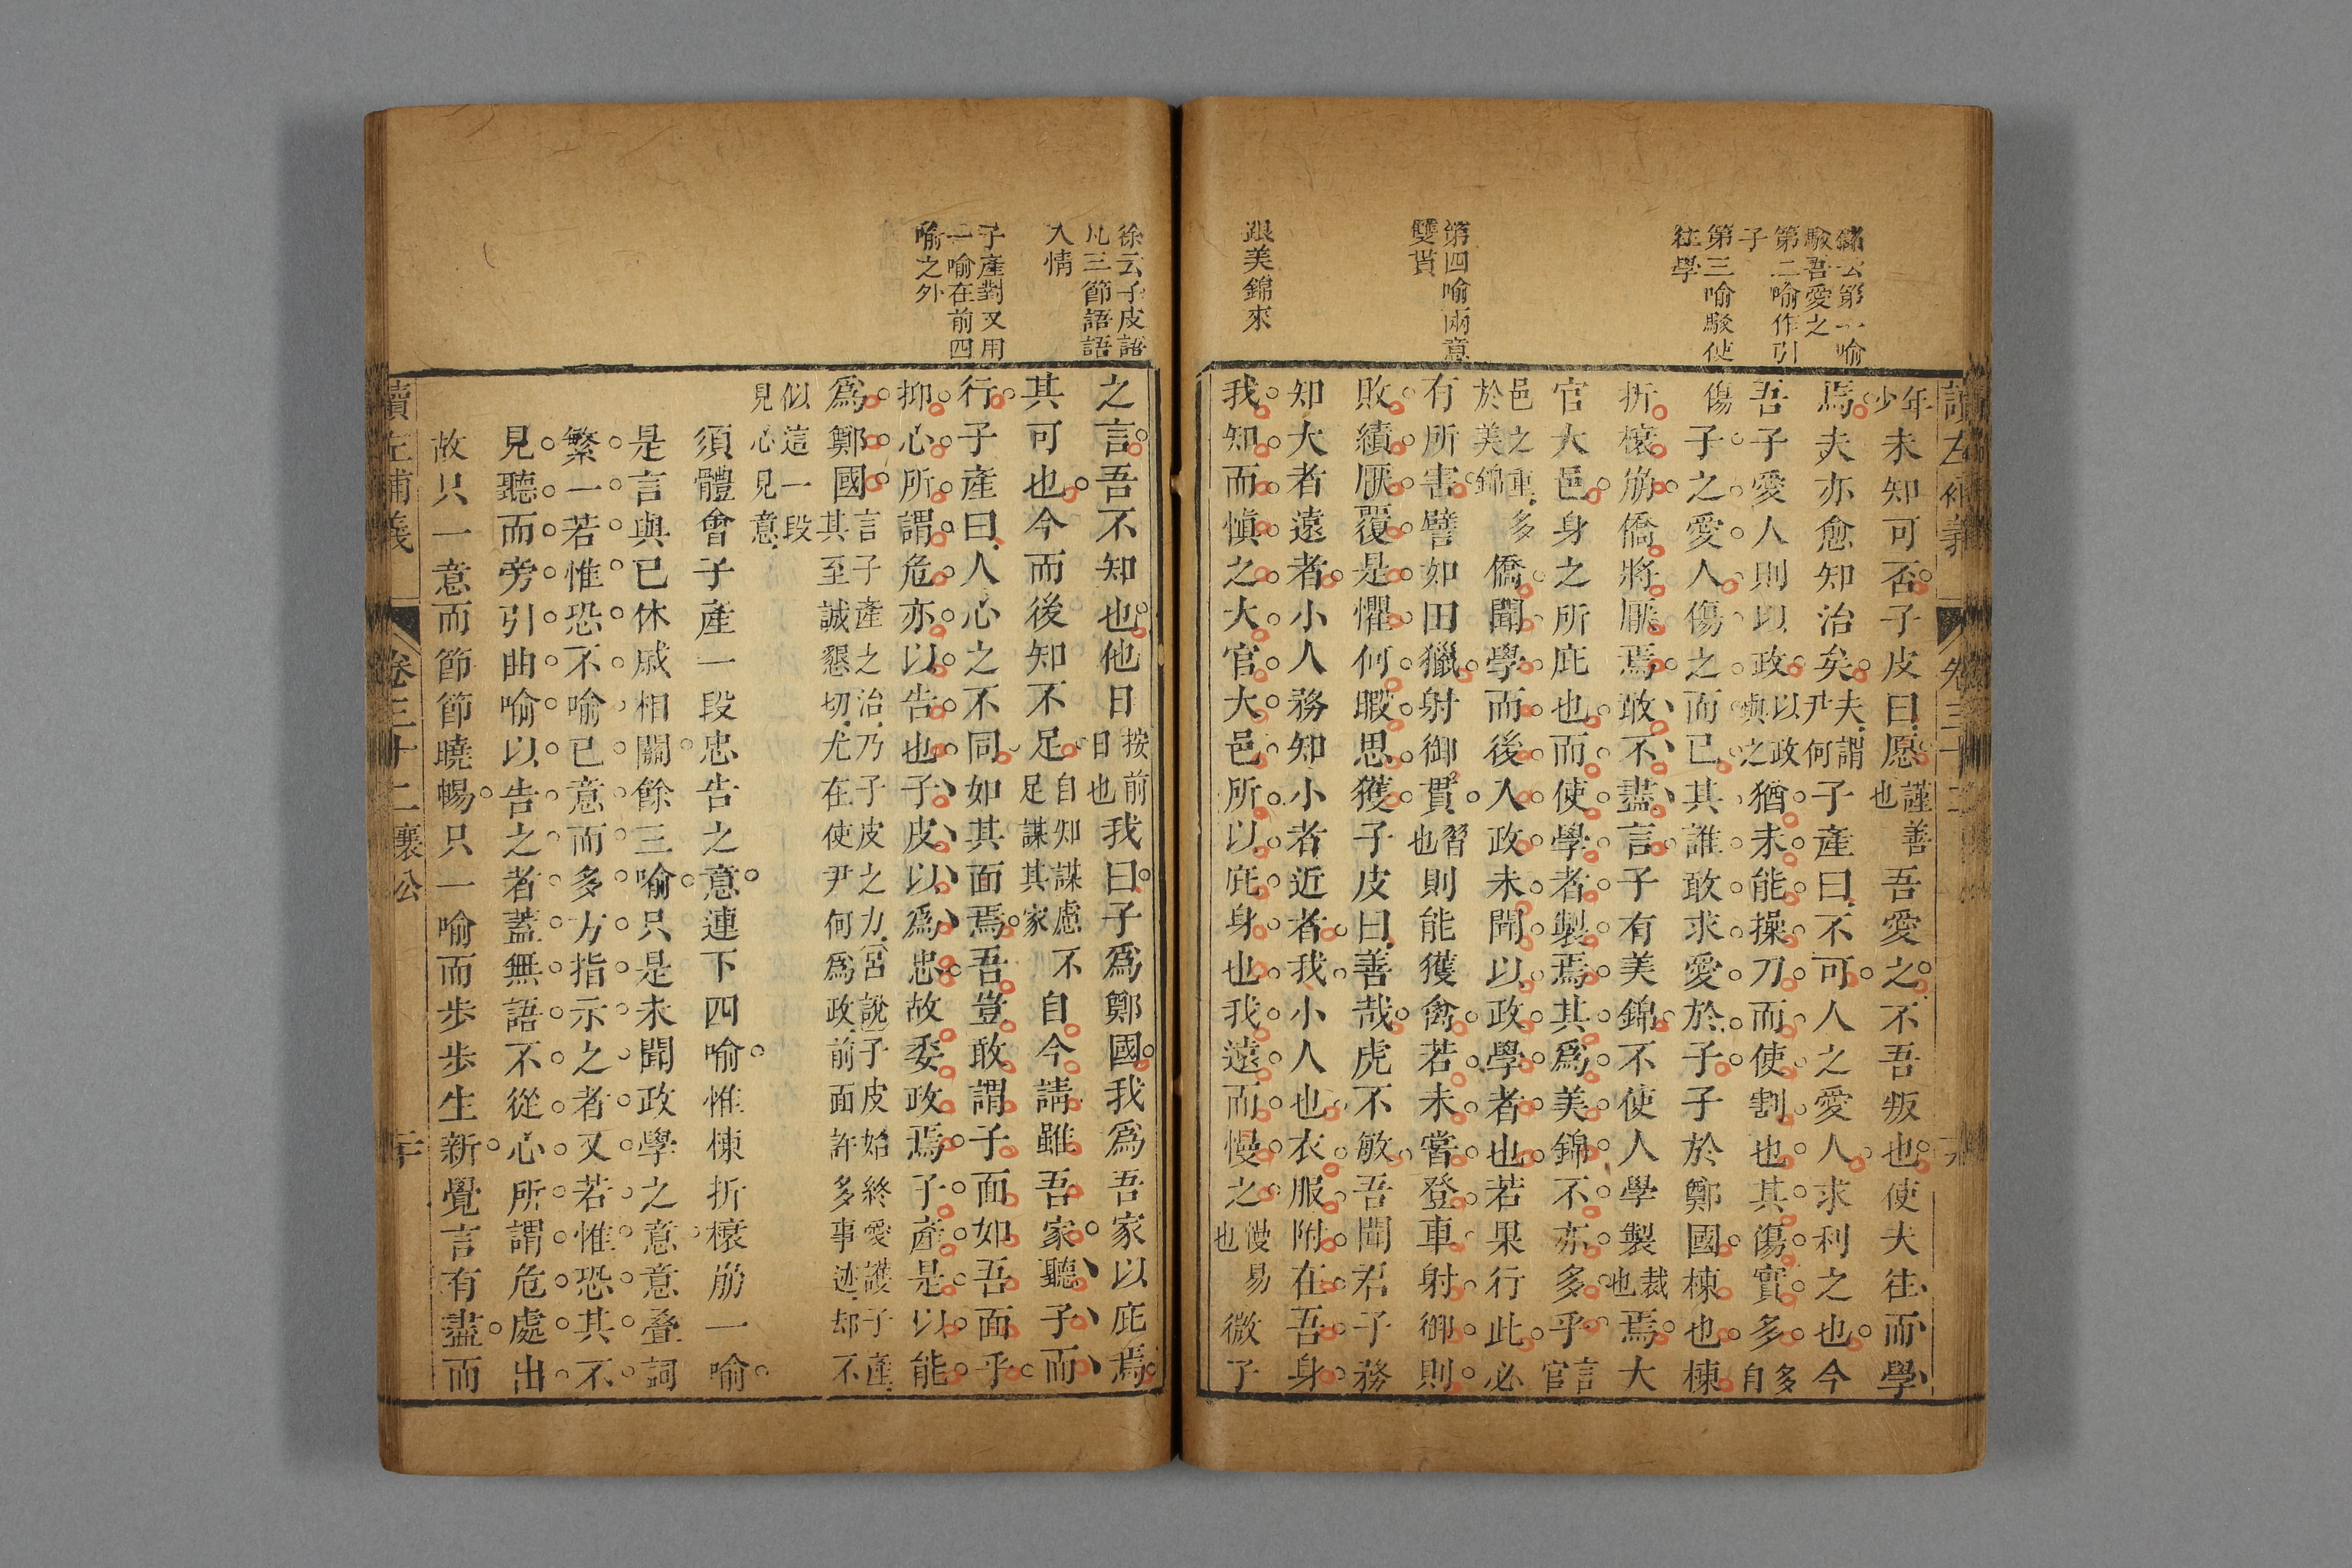 讀左補義
卷三十二
少年未知可否子皮曰愿謹善也吾愛之不吾叛也使夫往而學
焉夫亦愈知治矣夫謂尹何子產曰不可人之愛人求利之也今
吾子愛人則以政以政與之猶未能操刀而使割也其傷實多多自
傷子之愛人傷之而已其誰敢求愛於子子於鄭國棟也棟
折榱崩僑將厭焉敢不盡言子有美錦不使人學製裁也焉大
官大邑身之所庇也而使學者製焉其爲美錦不亦多乎言官
邑之重多於美錦僑聞學而後入政未聞以政學者也若果行此必
有所害譬如田獵射御貫習也則能獲禽若未嘗登車射御則
敗績厭覆是懼何暇思獲子皮曰善哉虎不敏吾聞君子務
知大者遠者小人務知小者近者我小人也衣服附在吾身
我知而慎之大官大邑所以庇身也我遠而慢之慢易也微子
云第一喻
駁吾愛之
第二喻作引
子
第三喻駁使
往學
第四喻兩意
雙貫
跟美錦來
之言吾不知也他日按前日也我曰子爲鄭國我爲吾家以庇焉
其可也今而後知不足自知謀慮不足謀其家自今請雖吾家聽子而
行子產曰人心之不同如其面焉吾豈敢謂子面如吾面乎
抑心所謂危亦以告也子皮以爲忠故委政焉子產是以能
爲鄭國言子產之治乃子皮之力宮說子皮始終愛護子產其至誠懇切尤在使尹何爲政前面許多事迹却不
似這一段見心見意
須體會子產一段忠告之意連下四喻惟棟折榱崩一喻
是言與已休戚相關餘三喻只是未聞政學之意意疊詞
繁一若惟恐不喻已意而多方指示之者又若惟恐其不
見聽而旁引曲喻以告之者蓋無語不從心所謂危處出
故只一意而節節曉暢只一喻而步步生新覺言有盡而
徐云子皮語
凡三節語語
入情
子產對又用
一喻在前四
喻之外
讀左補義
卷三十二襄公
二十